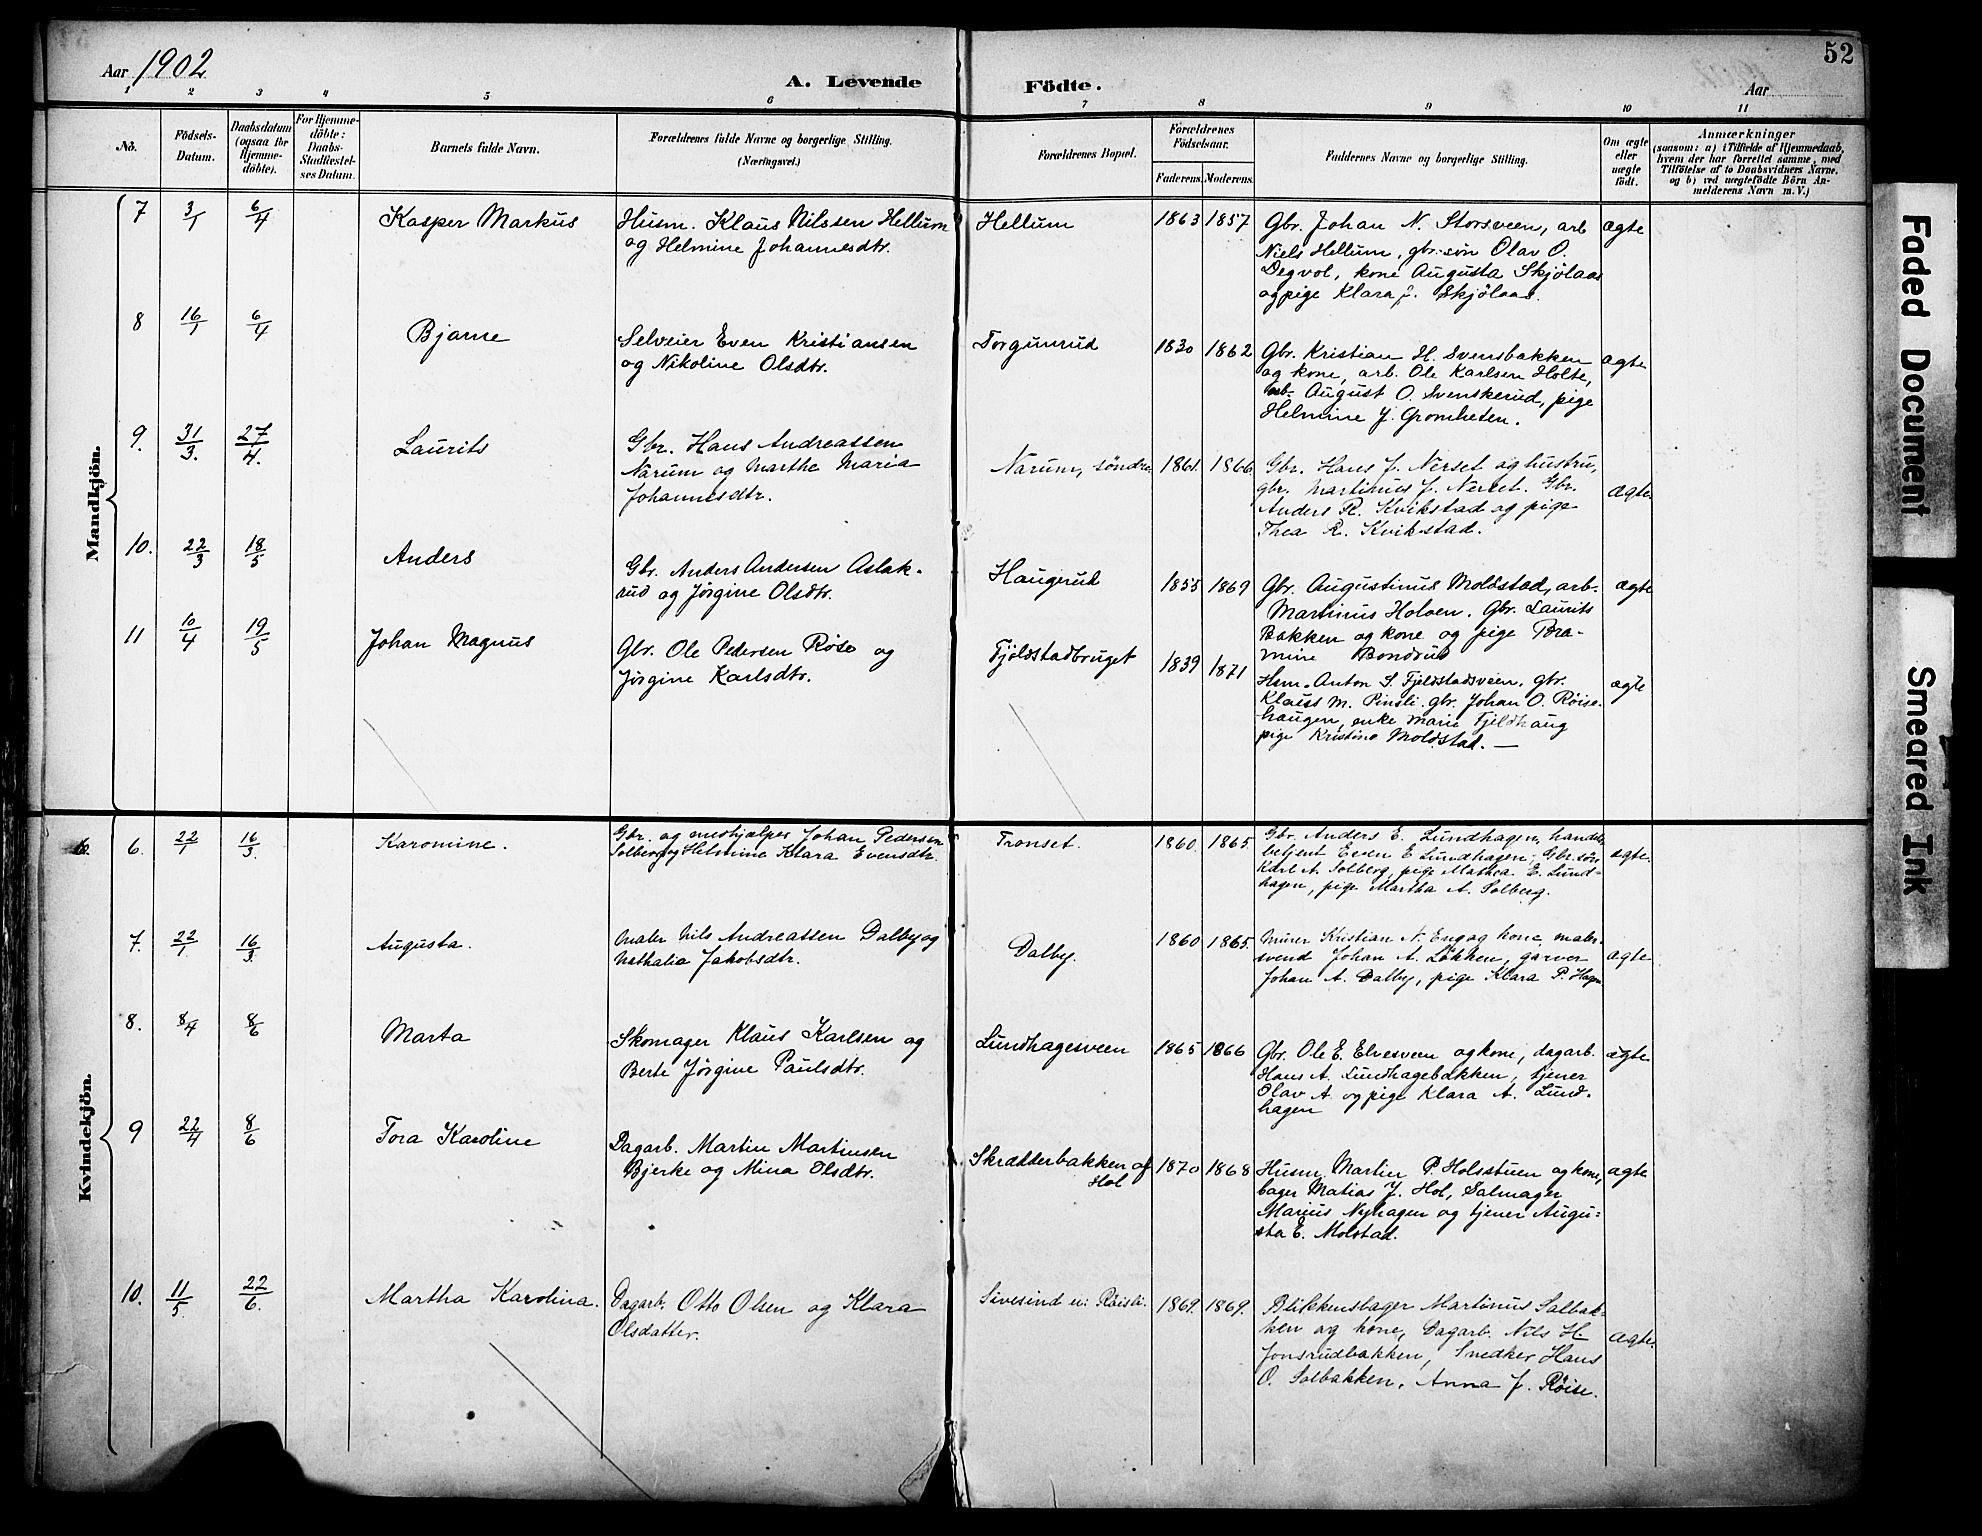 52
Aar 1902
A. Levende
Födte.
Aar
1 2 3 4 5 6 7 8 9 10 11
No.
Födsels-
Datum.
Daabsdatum
(ogsaa for
Hjemme-
döbte).
For Hjemme-
döbte:
Daabs-
Stadfæstel-
ses Datum.
Barnets fulde Navn.
Forældrenes fulde Navne og borgerlige Stilling.
(Næringsvei.)
Forældrenes Bopæl.
Forældrenes
Födselsaar.
Faderens. Moderens.
Faddernes Navne og borgerlige Stilling.
Om ægte
eller
uægte
födt.
Anmærkninger
(saasom: a) i Tilfælde af Hjemmedaab,
hvem der har forrettet samme, med
Tilföielse af to Daabsvidners Navne.
og b) ved uægtefödte Börn An-
melderens Navn m. V.)
Mandkjön.
7 3/1 6/4 Kasper Markus
Husm. Klaus Nilssen Hellum
og Helmine Johannesdtr.
Hellum 1863 1857
Gbr. Johan N. Storsveen, arb
Niels Hellum, gbr.søn Olav O.
Degvol, kone Augusta Skjölaas
og pige Klara J. Skjölaas.
ægte
8 16/1 6/4 Bjarne
Selveier Even Kristiansen
og Nikoline Olsdtr.
Torgunrud 1830 1862
Gbr. Kristian H. Svensbakken
og kone, arb. Ole Karlsen Holte,
arb. August O. Svenskerud, pige
Helmine J. Gromheten.
ægte
9. 31/3. 27/4. Laurits
Gbr. Hans Andreassen
Narum og Marthe Maria
Johannesdtr.
Narum, søndre 1861. 1866.
Gbr. Hans J. Nerset og hustru,
gbr. Martinus J. Nerset. Gbr.
Anders R. Kvikstad og pige
Thea R. Kvikstad.
ægte.
10. 22/3 18/5 Anders
Gbr. Anders Andersen Aslak-
rud og Jørgine Olsdtr.
Haugerud 1855 1869
Gbr. Augustinus Moldstad, arb.
Martinus Holven. Gbr. Laurits
Bakken og kone og pige Bra-
mine Bondrud
ægte
11 10/4 19/5 Johan Magnus
Gbr. Ole Pedersen Røise og
Jørgine Karlsdtr.
Fjeldstadbruget 1839 1871
Hsm. Anton S. Fjeldstadsveen, gbr.
Klauss M. Pinsli. gbr. Johan O. Røise-
haugen, enke Marie Fjeldhaug
pige Kristine Moldstad. —
ægte
Kvindekjön.
6. 22/1 16/3. Karomine.
Gbr. og medhjælper Johan Pedersen
Solberg og Helmine Klara Evensdtr.
Tronset. 1860. 1865.
Gbr. Anders E. Lundhagen, handels
betjent Even E Lundhagen, Gbr.søn
Karl A. Solberg, pige Mathea E. Lund-
hagen, pige Martha A. Solberg.
ægte.
7. 22/1. 16/3. Augusta.
Maler Nils Andreassen Dalby og
Nathalie Jakobsdtr.
Dalby. 1860 1865.
Murer Kristian N. Eng og kone, maler-
svend Johan A. Løkken, garver
Johan A. Dalby, pige Klara P. Hagen
ægte
8. 8/4 8/6 Marta
Skomager Klaus Karlsen og
Berte Jørgine Paulsdtr.
Lundhagesveen 1865 1866
Gbr. Ole E. Elvesveen og kone, dagarb.
Hans A. Lundhagebakken, tjener
Olav A. og pige Klara A. Lund-
hagen
ægte
9 22/4 8/6 Tora Karoline
Dagarb. Martin Martinsen
Bjerke og Mina Olsdtr.
Skrædderbakken af
Hol
1870 1868
Husm. Martin P. Holsstuen og kone,
bager Matias J. Hol, Salmager
Marius Nyhagen og tjener Augu-
sta E. Molstad.
ægte
10. 11/5 22/6. Martha Karolina.
Dagarb. Otto Olsen og Klara
Olsdatter.
Sivesind u: Røisli. 1869. 1869.
Blikkenslager Martinus Solbak-
ken og kone, Dagarb. Nils H.
Jonsrudbakken, Snedker Hans
O. Solbakken, Anna J. Røise.
ægte.
Faded Document
Smeared Ink